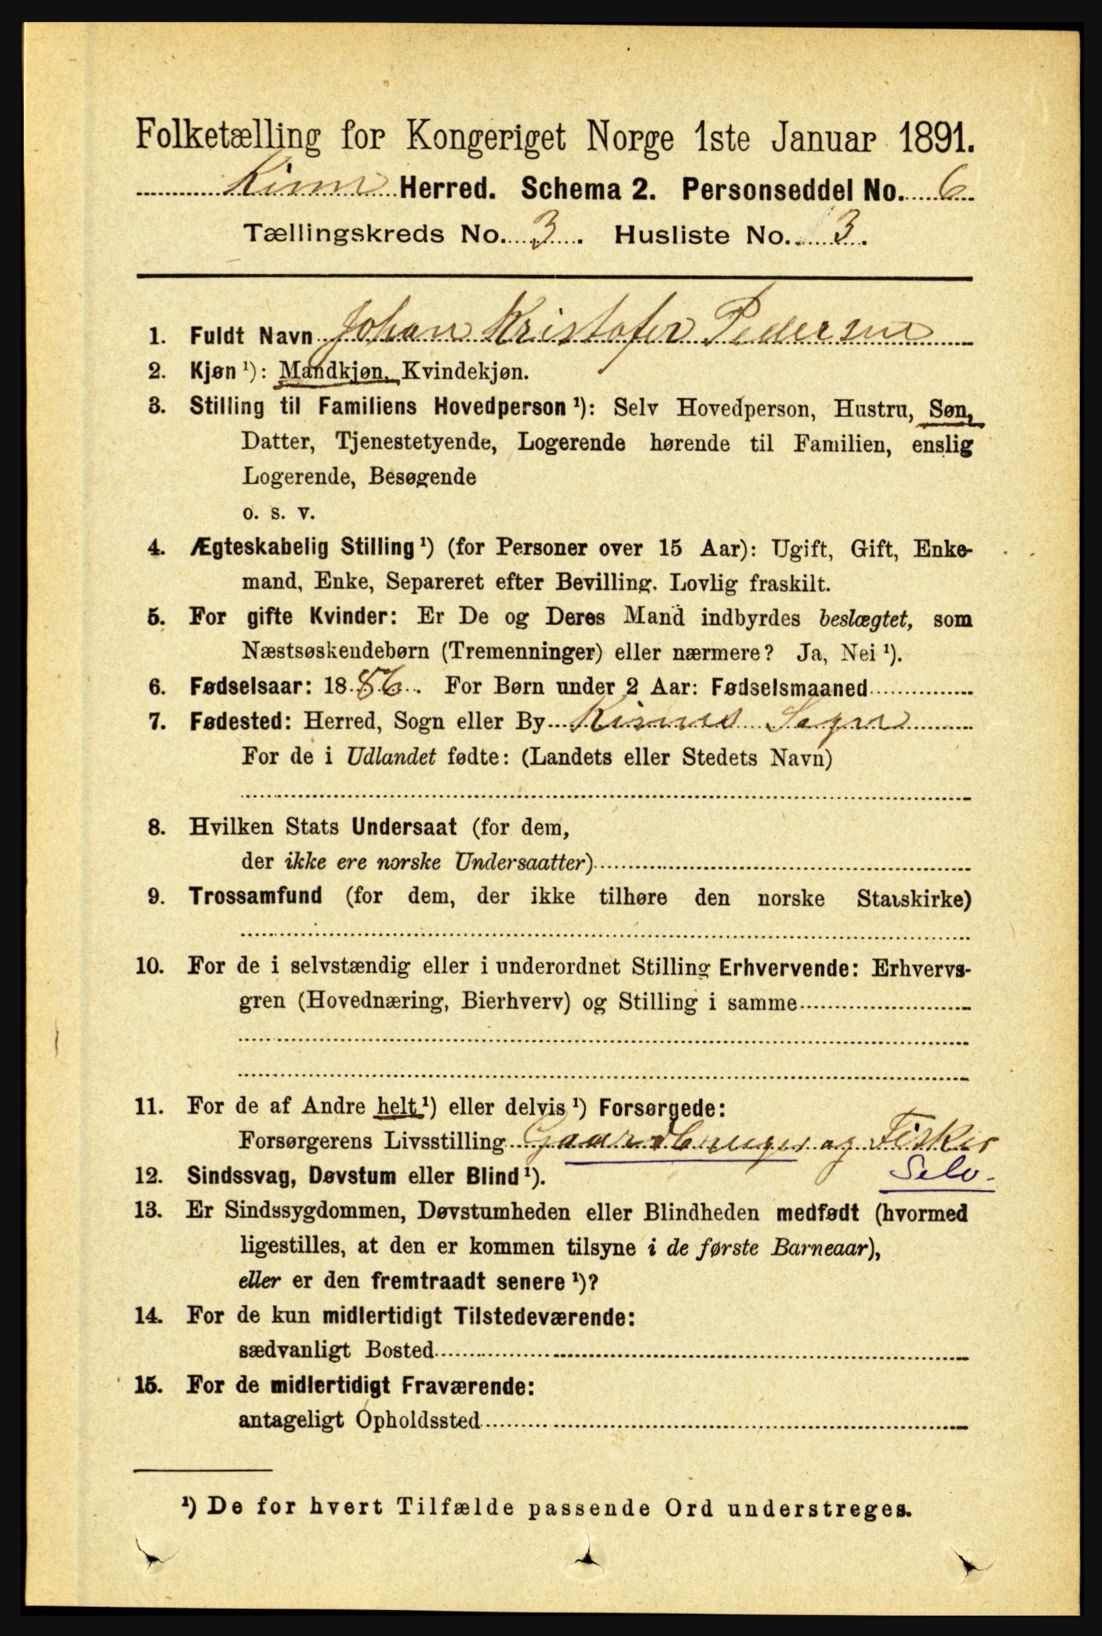 Folketælling for Kongeriget Norge 1ste Januar 1891.
Kinn Herred. Schema 2. Personseddel No. 6
Tællingskreds No. 3. Husliste No. 3.
1. Fuldt Navn Johan Kristofer Pedersen
2. Kjøn ¹): Mandkjøn, Kvindekjøn.
3. Stilling til Familiens Hovedperson ¹): Selv Hovedperson, Hustru, Søn,
Datter, Tjenestetyende, Logerende hørende til Familien, enslig
Logerende, Besøgende
o. s. v.
4. Ægteskabelig Stilling ¹) (for Personer over 15 Aar): Ugift, Gift, Enke-
mand, Enke, Separeret efter Bevilling. Lovlig fraskilt.
5. For gifte Kvinder: Er De og Deres Mand indbyrdes beslægtet, som
Næstsøskendebørn (Tremenninger) eller nærmere? Ja, Nei ¹).
6. Fødselsaar: 1886. For Børn under 2 Aar: Fødselsmaaned
7. Fødested: Herred, Sogn eller By Kinns Sogn
For de i Udlandet fødte: (Landets eller Stedets Navn)
8. Hvilken Stats Undersaat (for dem,
der ikke ere norske Undersaatter)
9. Trossamfund (for dem, der ikke tilhøre den norske Statskirke)
10. For de i selvstændig eller i underordnet Stilling Erhvervende: Erhvervs-
gren (Hovednæring, Bierhverv) og Stilling i samme
11. For de af Andre helt ¹) eller delvis ¹) Forsørgede:
Forsørgerens Livsstilling Gaardbruger og Fisker
Selv.
12. Sindssvag, Døvstum eller Blind ¹).
13. Er Sindssygdommen, Døvstumheden eller Blindheden medfødt (hvormed
ligestilles, at den er kommen tilsyne i de første Barneaar),
eller er den fremtraadt senere ¹)?
14. For de kun midlertidigt Tilstedeværende:
sædvanligt Bosted
15. For de midlertidigt Fraværende:
antageligt Opholdssted
¹) De for hvert Tilfælde passende Ord understreges.